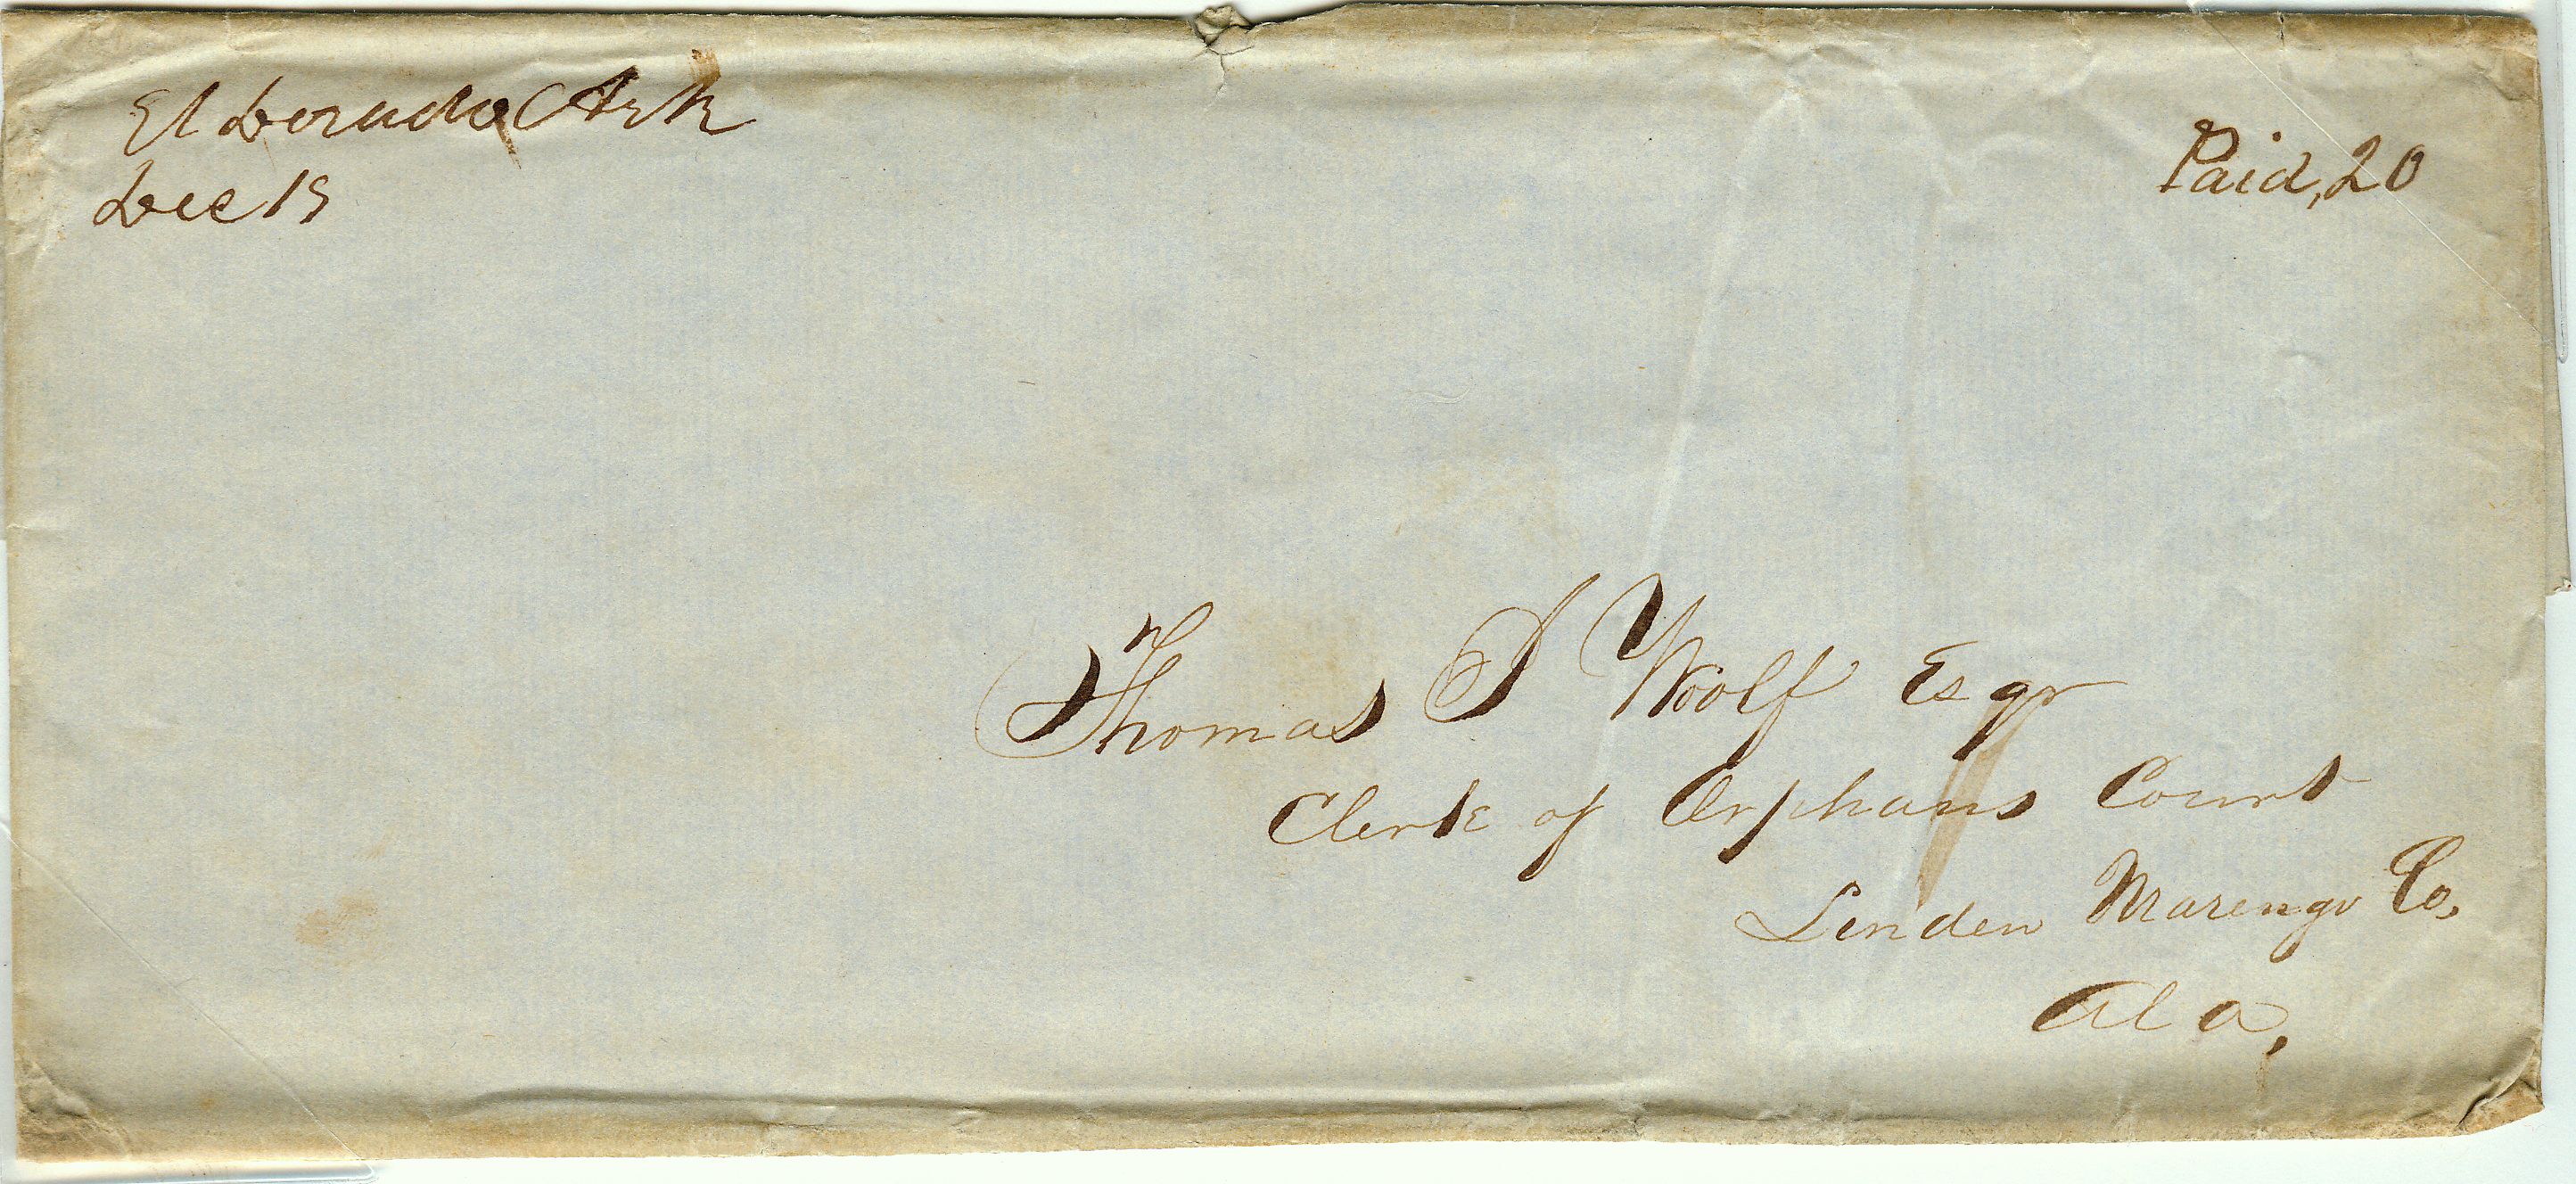 El Dorado Ark
Dec 15
Paid, 20
Thomas I Woolf Esqr
Clerk of Orphans Court
Linden Marengo Co,
Ala,